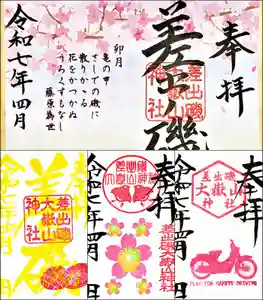 奉拝
差出磯
差出磯
神社
卯月
亀の甲
さしでの磯に
散りかゝる
花をかつかぬ
うろくずもなし
藤原為世
令和七年四月
差出磯
差出磯
大嶽山
神社
令和七年四月
奉拝
差出磯
大嶽山神社
令和七年四月
奉拝
差出磯
大嶽山
神社
差出磯大嶽山神社
令和七年四月
PLAY FOR SAFETY DRIVING